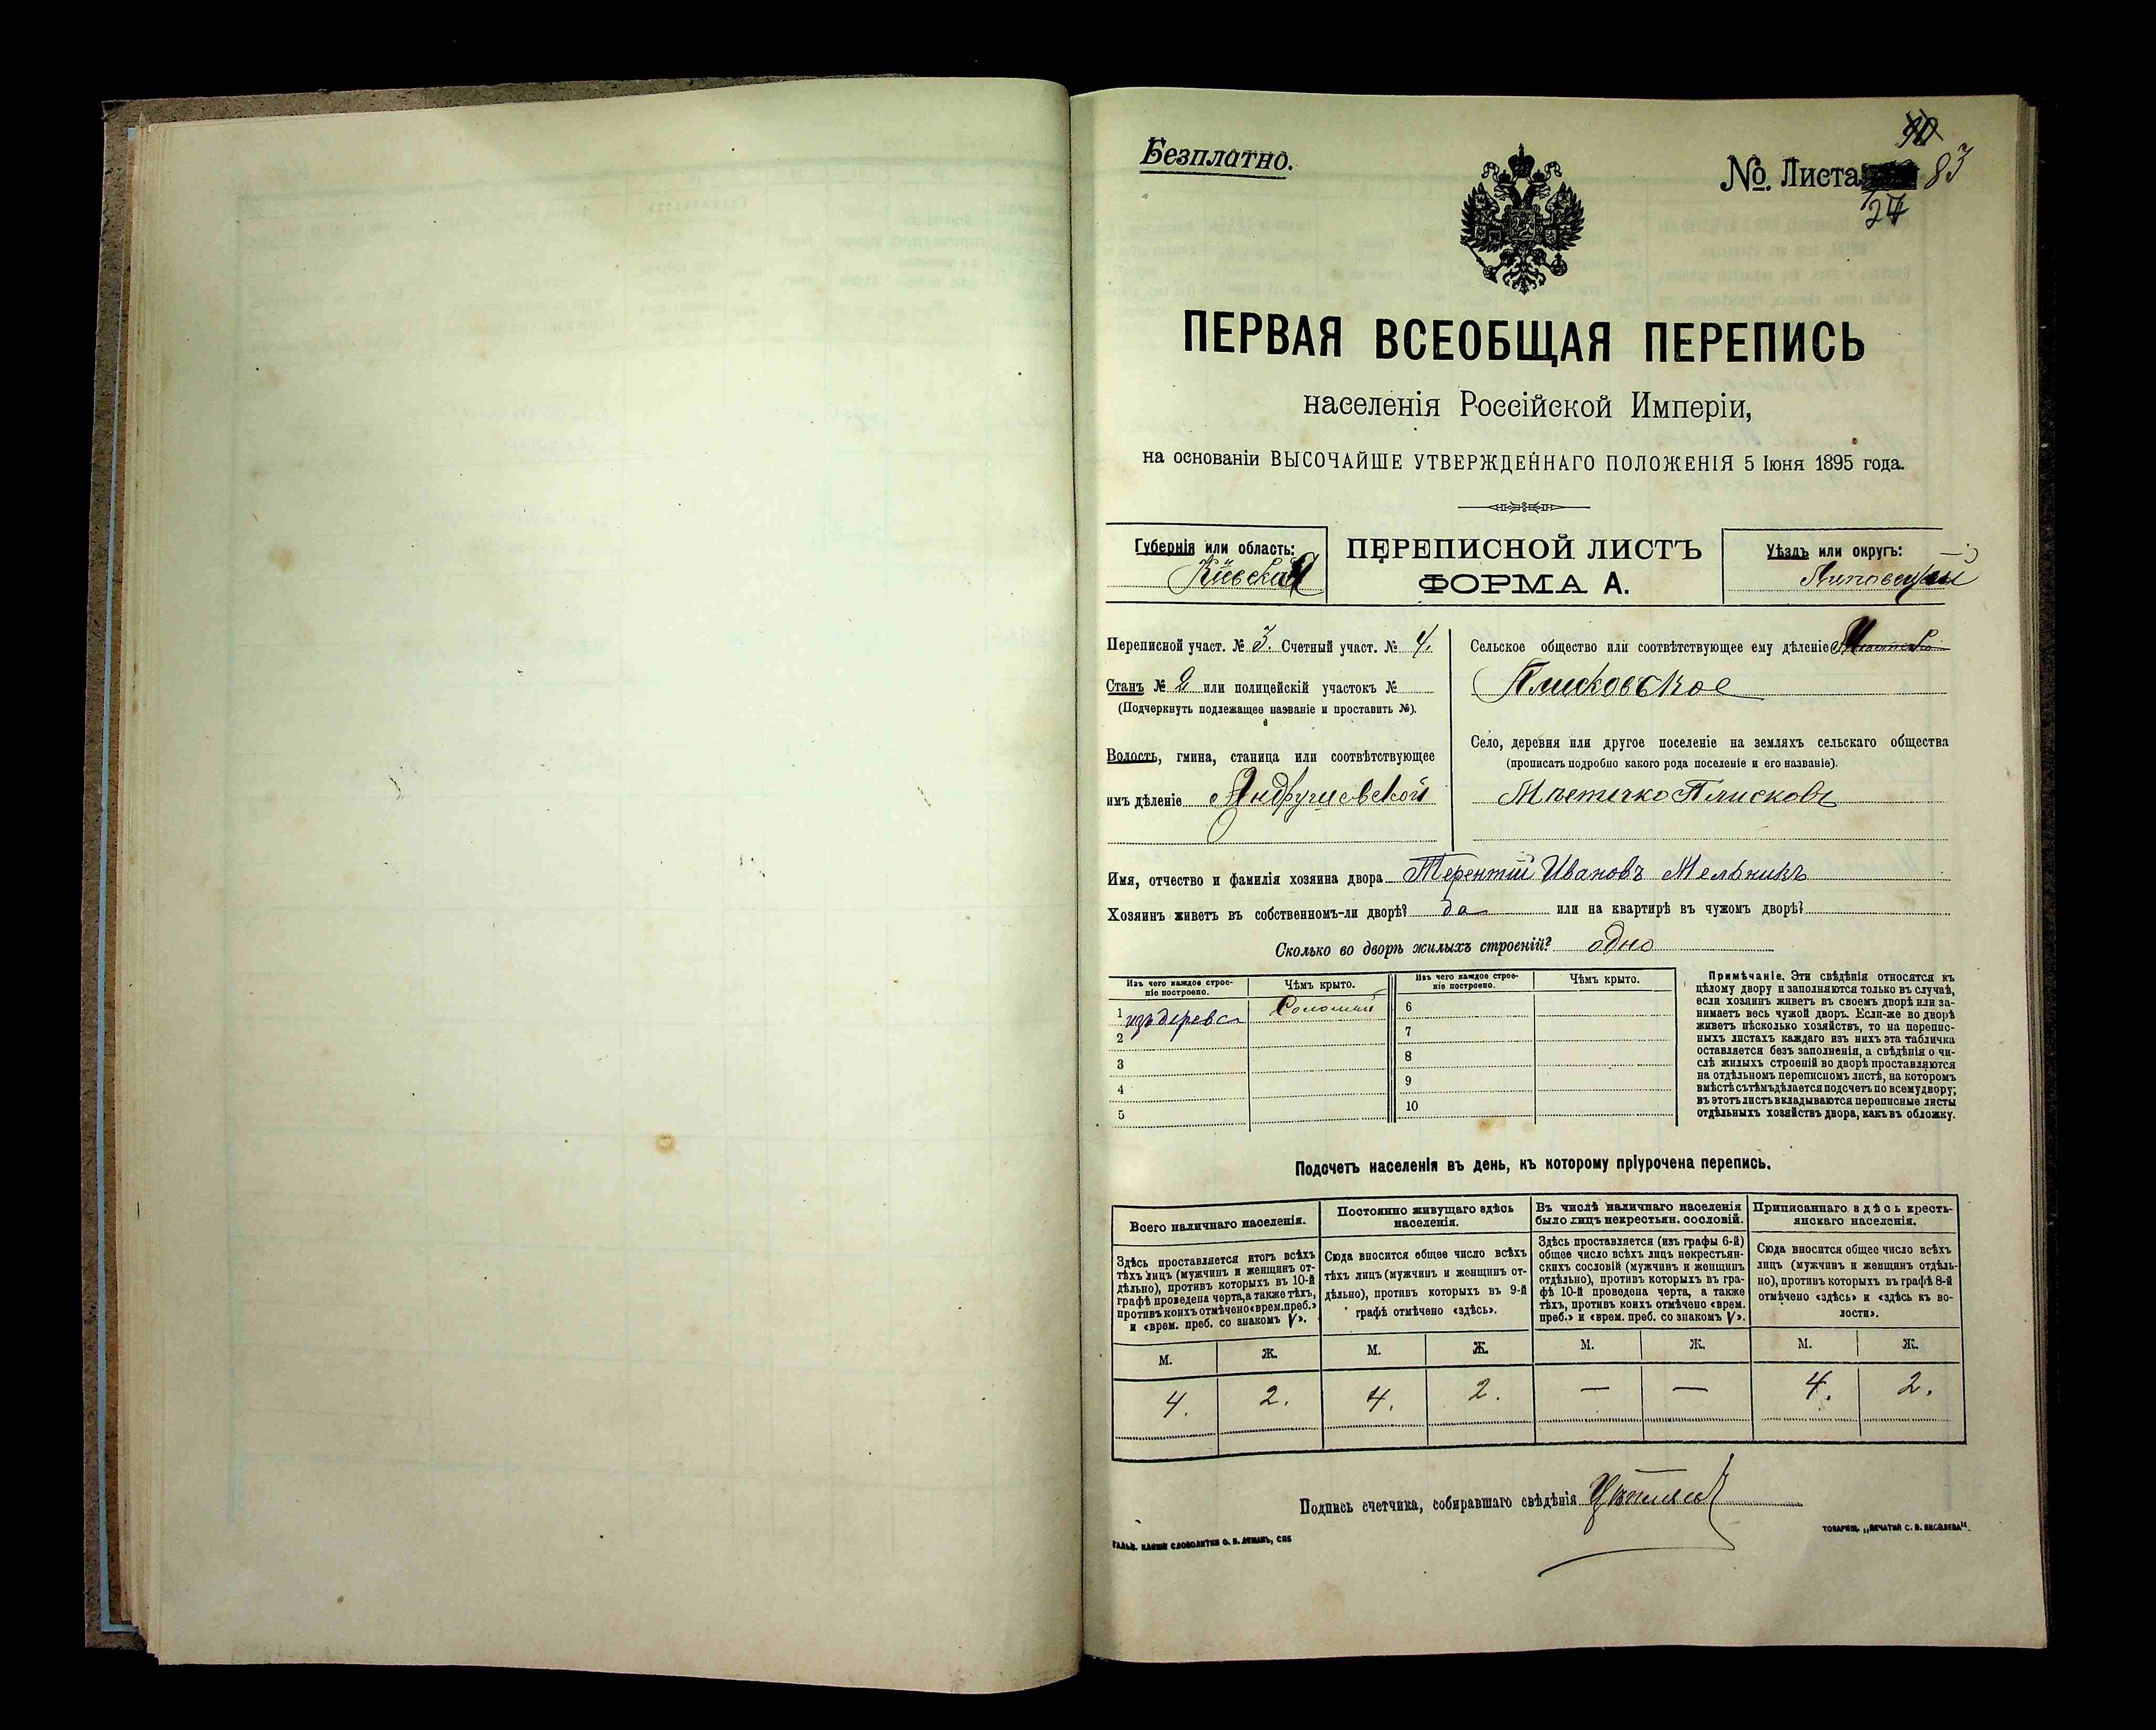 Безплатно.
No. Листа 83
24
ПЕРВАЯ ВСЕОБЩАЯ ПЕРЕПИСЬ
населенія Россійской Имперіи,
на основаніи ВЫСОЧАЙШЕ УТВЕРЖДЕННАГО ПОЛОЖЕНІЯ 5 Іюня 1895 года.
Губернія или область:
Кіевская
ПЕРЕПИСНОЙ ЛИСТЪ
ФОРМА А.
Уѣздъ или округъ:
Липовецкій
Переписной участ. № 3. Счетный участ. № 4.
Станъ № 2 или полицейскій участокъ №
(Подчеркнуть подлежащее названіе и проставить №).
Волость, гмина, станица или соотвѣтствующее
имъ дѣленіе Андрушевской
Сельское общество или соотвѣтствующее ему дѣленіе
Плисковское
Село, деревня или другое поселеніе на земляхъ сельскаго общества
(прописать подробно какого рода поселеніе и его названіе).
Мѣстечко Плисковъ
Имя, отчество и фамилія хозяина двора Терентій Ивановъ Мельникъ
Хозяинъ живетъ въ собственномъ-ли дворѣ? да или на квартирѣ въ чужомъ дворѣ?
Сколько во дворѣ жилыхъ строеній? одно
Изъ чего каждое строе-
ніе построено.
Чѣмъ крыто.
Изъ чего каждое строе-
ніе построено.
Чѣмъ крыто.
1 изъ дерева Соломой 6
2 7
3 8
4 9
5 10
Примѣчаніе. Эти свѣдѣнія относятся къ
цѣлому двору и заполняются только въ случаѣ,
если хозяинъ живетъ въ своемъ дворѣ или за-
нимаетъ весь чужой дворъ. Если-же во дворѣ
живетъ нѣсколько хозяйствъ, то на перепис-
ныхъ листахъ каждаго изъ нихъ эта табличка
оставляется безъ заполненія, а свѣдѣнія о чи-
слѣ жилыхъ строеній во дворѣ проставляются
на отдѣльномъ переписномъ листѣ, на которомъ
вмѣстѣ съ тѣмъ дѣлается подсчетъ по всему двору;
въ этотъ листъ вкладываются переписные листы
отдѣльныхъ хозяйствъ двора, какъ въ обложку.
Подсчетъ населенія въ день, къ которому пріурочена перепись.
Всего наличнаго населенія.
Здѣсь проставляется итогъ всѣхъ
тѣхъ лицъ (мужчинъ и женщинъ от-
дѣльно), противъ которыхъ въ 10-й
графѣ проведена черта, а также тѣхъ,
противъ коихъ отмѣчено «врем. преб.»
и «врем. преб. со знакомъ V».
Постоянно живущаго здѣсь
населенія.
Сюда вносится общее число всѣхъ
тѣхъ лицъ (мужчинъ и женщинъ от-
дѣльно), противъ которыхъ въ 9-й
графѣ отмѣчено «здѣсь».
Въ числѣ наличнаго населенія
было лицъ некрестьян. сословій.
Здѣсь проставляется (изъ графы 6-й)
общее число всѣхъ лицъ некрестьян-
скихъ сословій (мужчинъ и женщинъ
отдѣльно), противъ которыхъ въ гра-
фѣ 10-й проведена черта, а также
тѣхъ, противъ коихъ отмѣчено «врем.
преб.» и «врем. преб. со знакомъ V».
Приписаннаго здѣсь кресть-
янскаго населенія.
Сюда вносится общее число всѣхъ
лицъ (мужчинъ и женщинъ отдѣль-
но), противъ которыхъ въ графѣ 8-й
отмѣчено «здѣсь» и «здѣсь къ во-
лости».
М. Ж. М. Ж. М. Ж. М. Ж.
4. 2. 4. 2. — — 4. 2.
Подпись счетчика, собиравшаго свѣдѣнія
ГАЛЬВ. КЛИШЕ СЛОВОЛИТНИ О. И. ЛЕМАНЪ, СПБ
ТОВАРИЩ. „ПЕЧАТНЯ С. П. ЯКОВЛЕВА“.